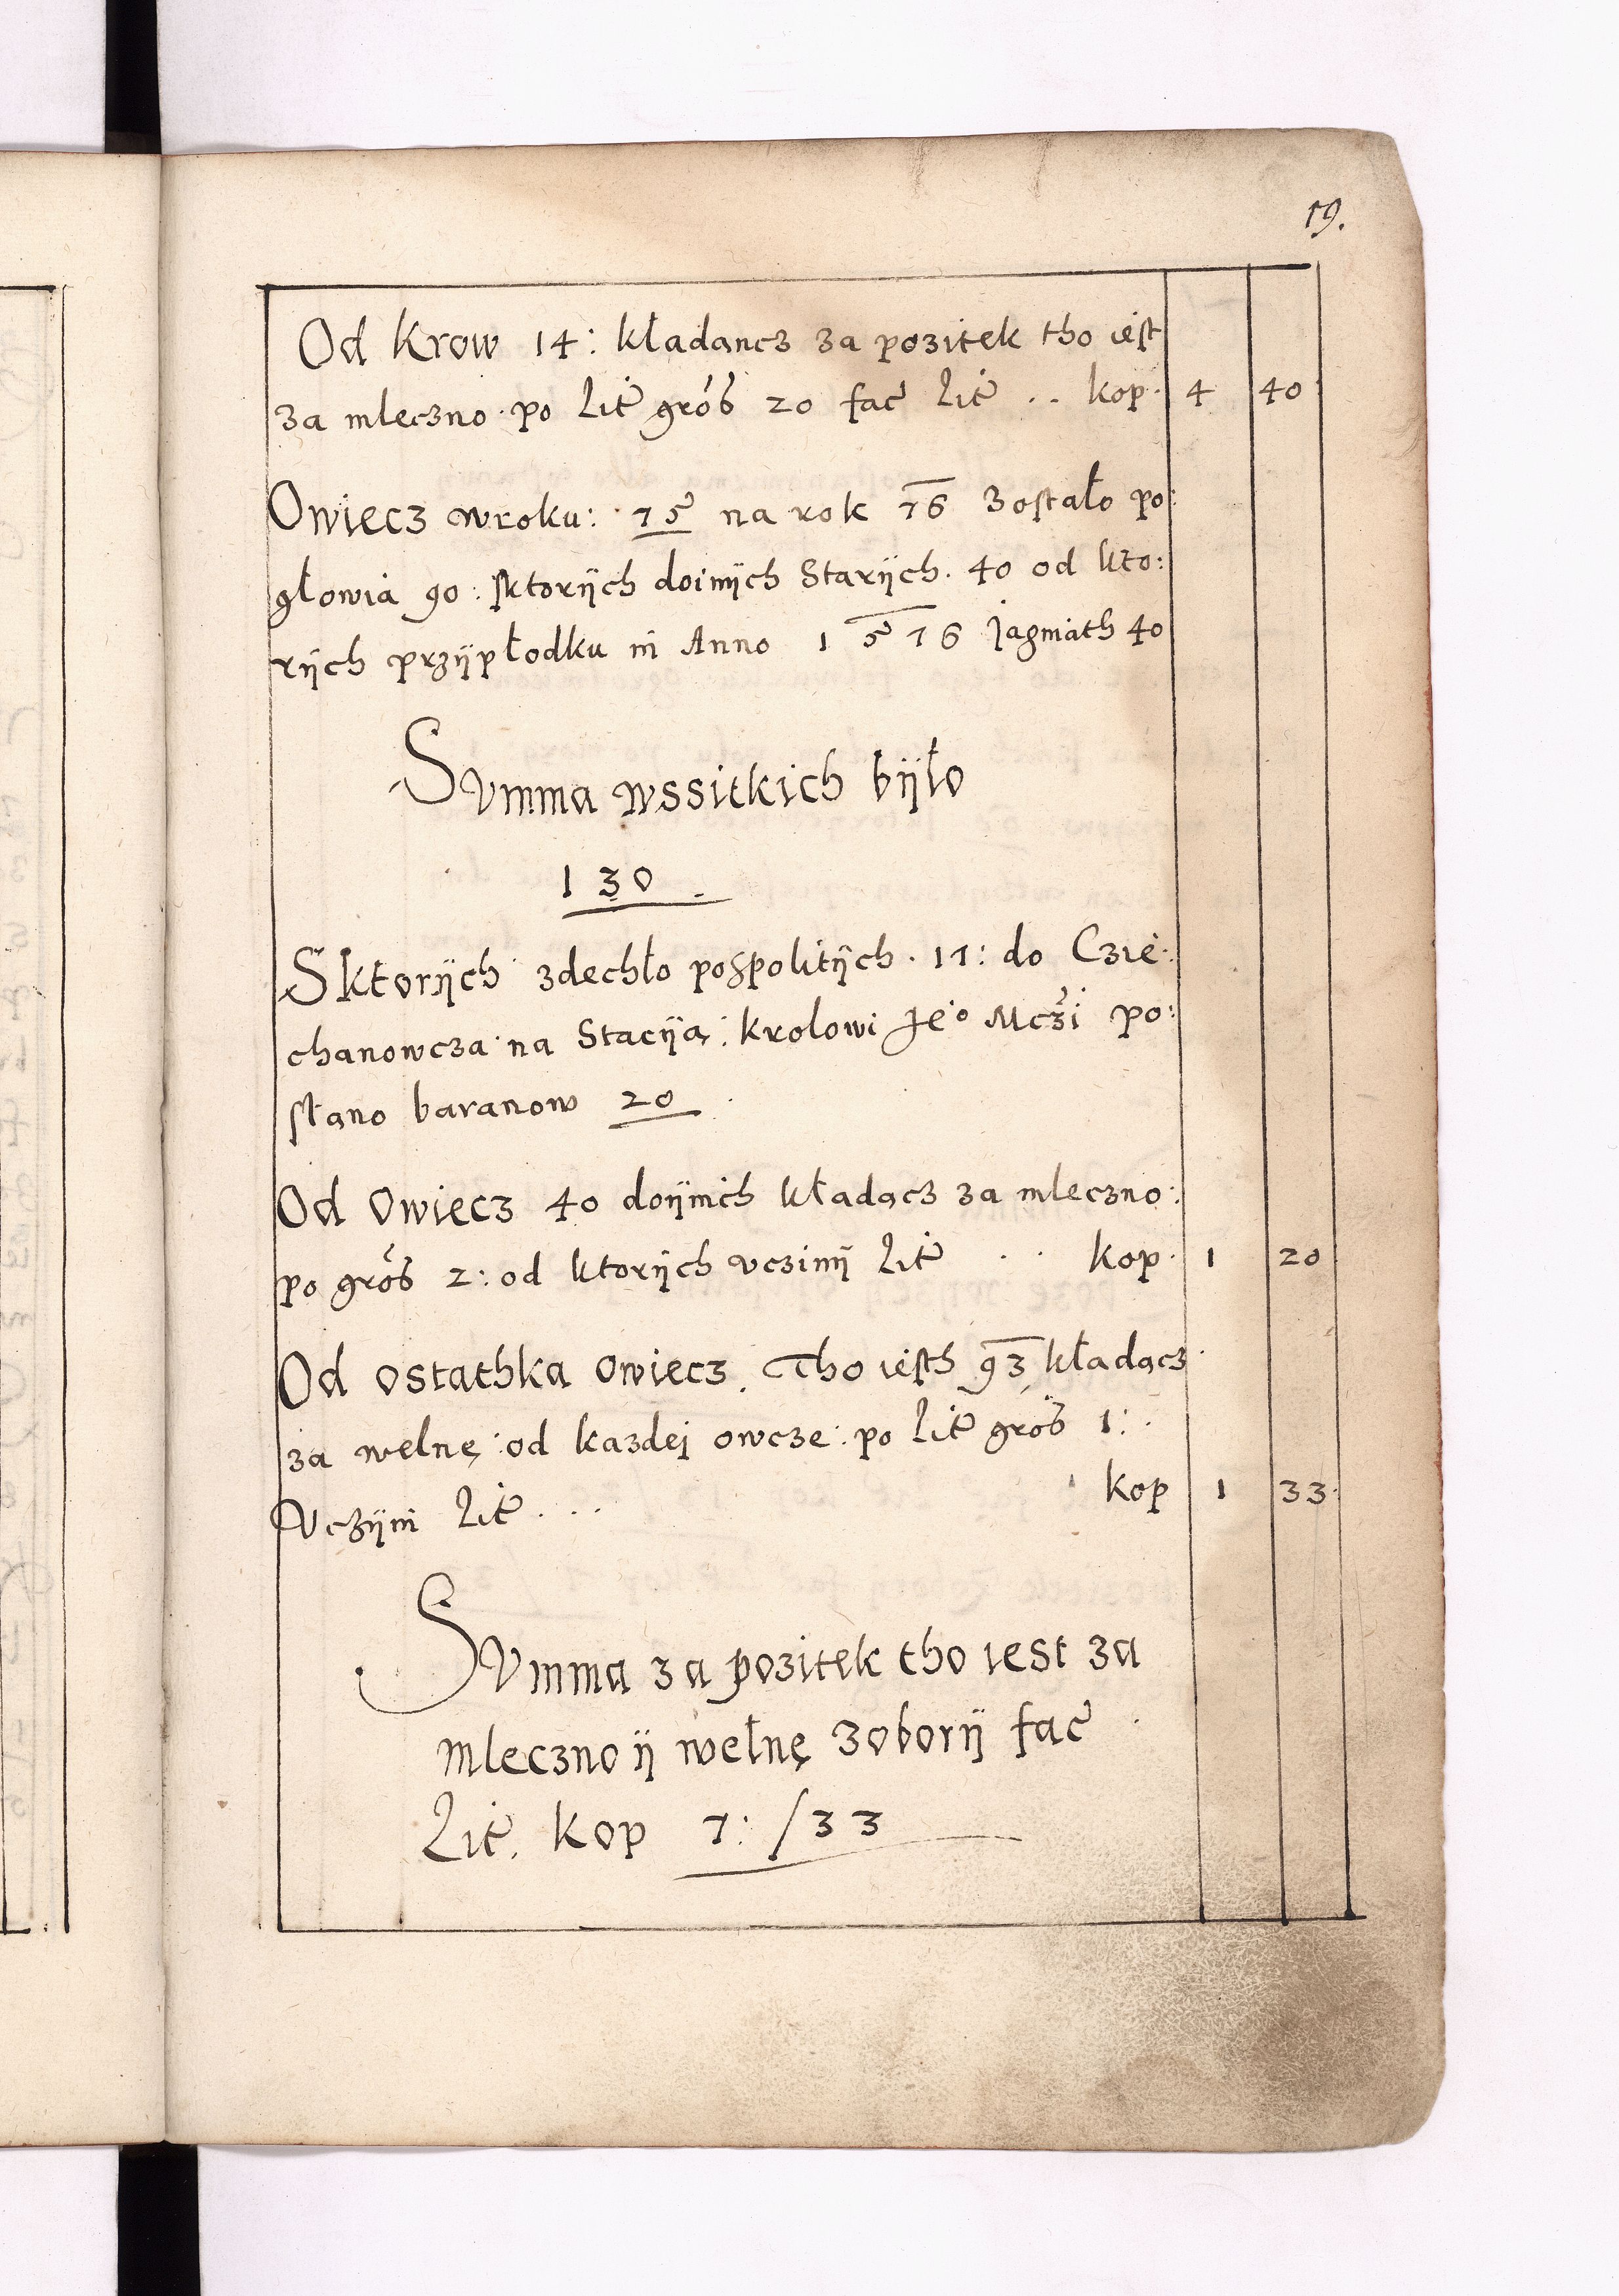 19.
Od Krow 14: kładancz za pozitek tho iest
za mleczno po Lit̃ gro̊ß 20 fac̃ Lit̃ .. kop. 4 40
Owiecz wroku: 75 na rok 76 Zostało po:
głowia 90: sktorÿch doimÿch StarÿCh. 40 od kto:
rÿch przÿpłodku in Anno 1576 Jagniath 40
SVmma wssitkich bÿło
130.
SktorÿCh zdechło pospolitÿch. 17: do Czie:
chanowcza na Staciją: krolowi Jeo Mczi po:
słano baranow 20
Od Owiecz 40 doÿnich kładącz za mleczno:
po gro̊ß 2: od ktorÿch vczinÿ Lit̃ .. kop. 1 20
Od ostathka owiecz. Tho iesth 93 kładącz
za welnę: od kazdej owcze: po Lit̃ gro̊ß 1:
Vczÿni Lit̃ ... kop 1 33
SVmma za pozitek tho iest za
mleczno ÿ wełnę Zoborÿ fac̃
Lit̃. kop 7: /33